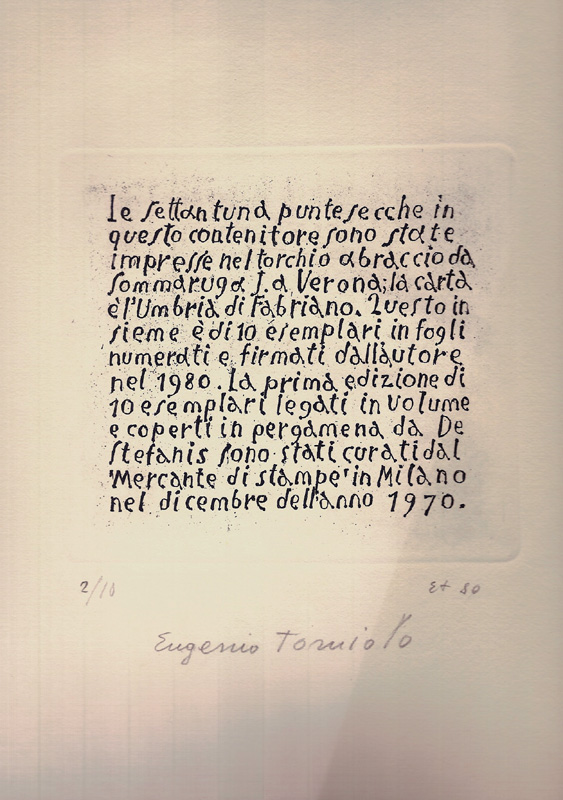 Le settantuna puntesecche in
questo contenitore sono state
impresse nel torchio a braccio da
Sommaruga J. a Verona; la carta
è l'Umbria di Fabriano. Questo in
sieme è di 10 esemplari in fogli
numerati e firmati dall'autore
nel 1980. La prima edizione di
10 esemplari legati in volume
e coperti in pergamena da De
Stefanis sono stati curati dal
'Mercante di stampe' in Milano
nel dicembre dell'anno 1970.
2/10 Et 80
Eugenio Tomiolo